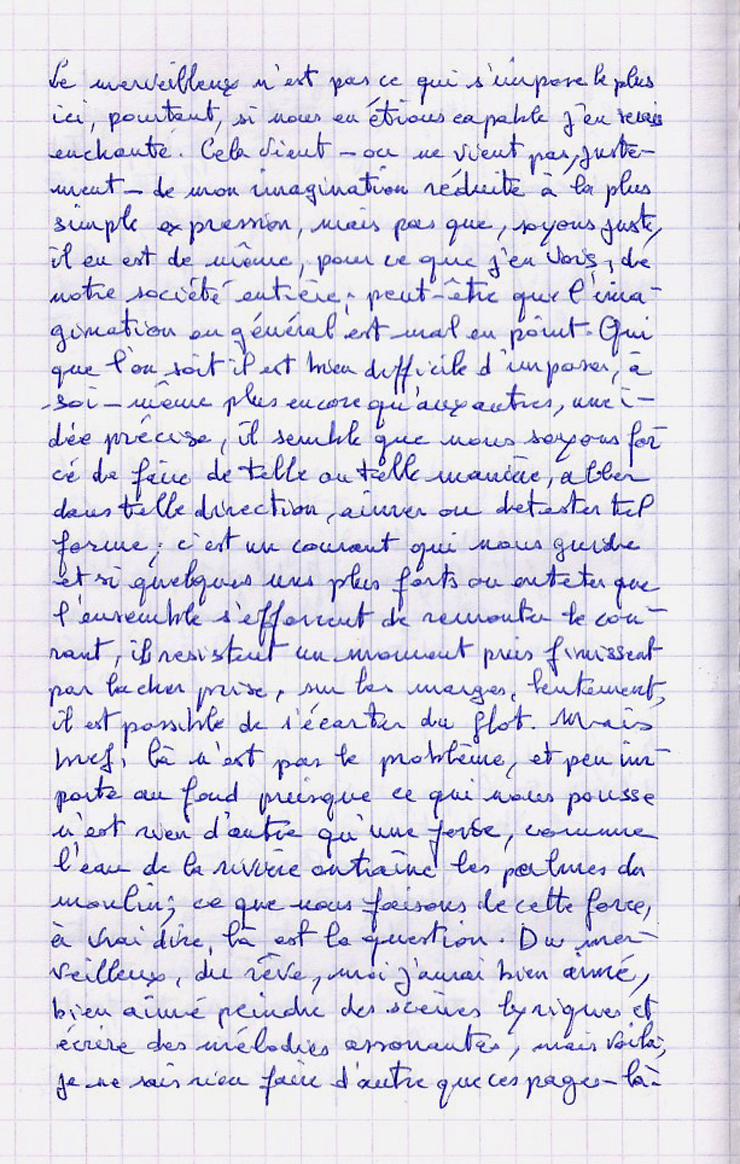 Le merveilleux n'est pas ce qui s'impose le plus
ici, pourtant, si nous en étions capable j'en serais
enchanté. Cela vient – ou ne vient pas, juste-
ment – de mon imagination réduite à la plus
simple expression, mais pas que, soyons juste,
il en est de même, pour ce que j'en vois, de
notre société entière; peut-être que l'ima-
gination en général est mal en point. Qui
que l'on soit il est bien difficile d'imposer, à
soi-même plus encore qu'aux autres, une i-
dée précise, il semble que nous soyons for
cé de faire de telle ou telle manière, aller
dans telle direction, aimer ou detester tel
forme; c'est un courant qui nous guide
et si quelques uns plus forts ou entetés que
l'ensemble s'efforcent de remonter le cou-
rant, ils resistent un moment puis finissent
par lacher prise, sur les marges, lentement,
il est possible de s'écarter du flot. Mais
bref, là n'est pas le problème, et peu im-
porte au fond puisque ce qui nous pousse
n'est rien d'autre qu'une force, comme
l'eau de la rivière entraîne les palmes du
moulin; ce que nous faisons de cette force,
à vrai dire, là est la question. Du mer-
veilleux, du rêve, moi j'aurai bien aimé,
bien aimé peindre des scènes lyriques et
écrire des mélodies assonantes, mais voilà,
je ne sais rien faire d'autre que ces pages-là.